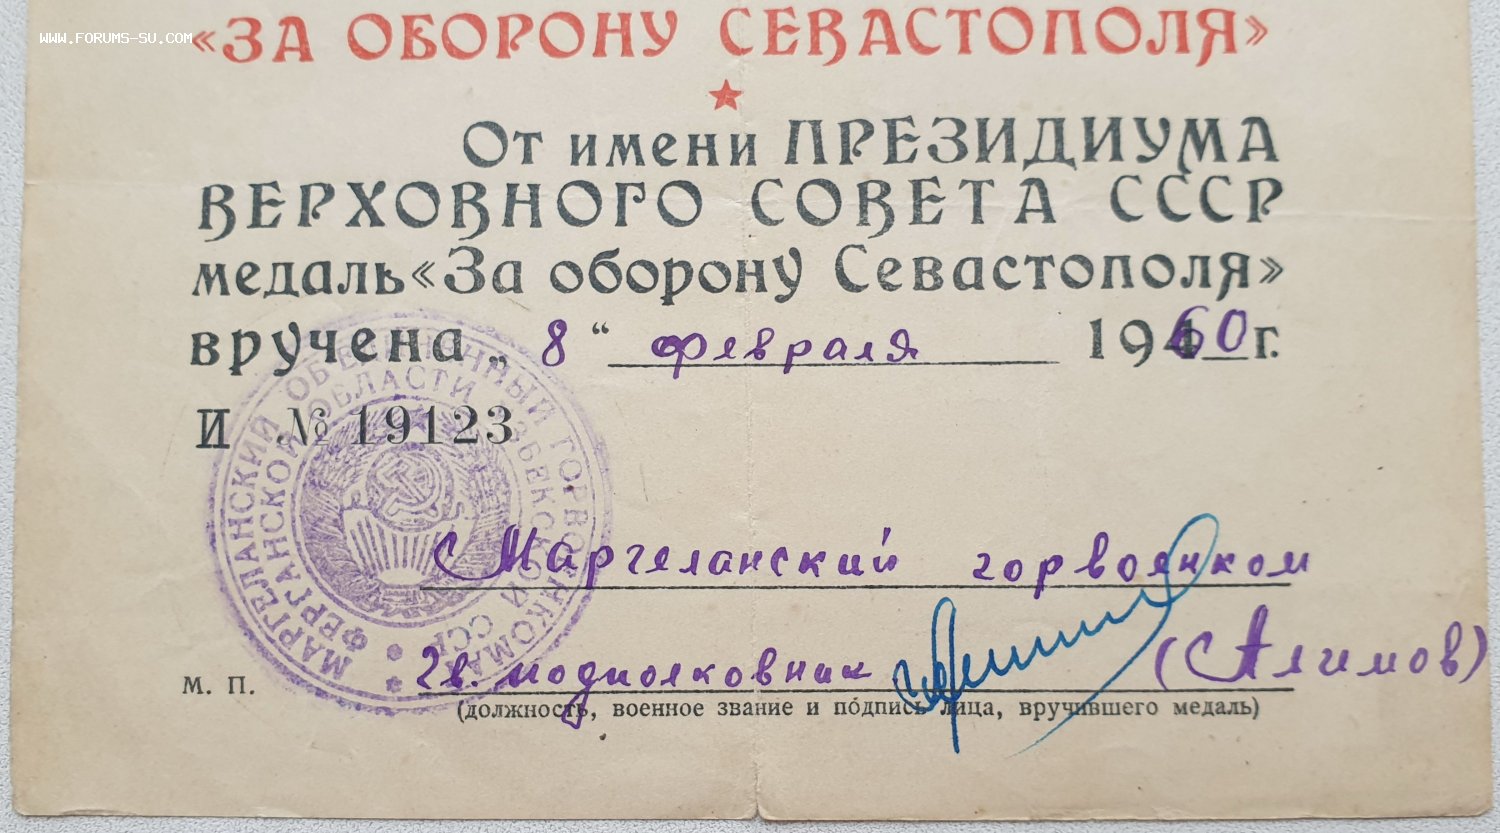 WWW.FORUMS-SU.COM
«ЗА ОБОРОНУ СЕВАСТОПОЛЯ»
От имени ПРЕЗИДИУМА
ВЕРХОВНОГО СОВЕТА СССР
медаль «За оборону Севастополя»
вручена „ 8 “ февраля 1960 г.
И № 19123
МАРГЕЛАНСКИЙ ОБЪЕДИНЕННЫЙ ГОРВОЕНКОМАТ
ФЕРГАНСКОЙ ОБЛАСТИ УЗБЕКСКОЙ ССР
Маргеланский горвоенком
гв. подполковник (Алимов)
М. П.
(должность, военное звание и подпись лица, вручившего медаль)